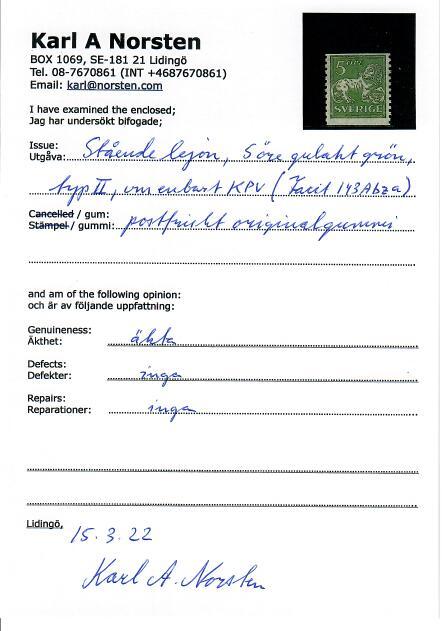 Karl A Norsten
BOX 1069, SE-181 21 Lidingö
Tel. 08-7670861 (INT +4687670861)
Email: karl@norsten.com
5 ÖRE
SVERIGE
I have examined the enclosed;
Jag har undersökt bifogade;
Issue:
Utgåva: Stående lejon, 5 öre gulakt grön,
typ II, vm enbart KPV (Facit 143Abza)
Cancelled / gum:
Stämpel / gummi: postfriskt originalgummi
and am of the following opinion:
och är av följande uppfattning:
Genuineness:
Äkthet: äkta
Defects:
Defekter: inga
Repairs:
Reparationer: inga
Lidingö, 15.3.22
Karl A. Norsten